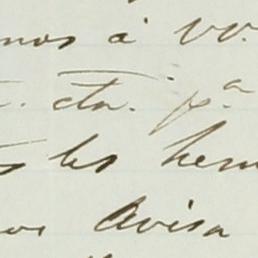 mos á vo
. cta. pª
les hem
os Avisa